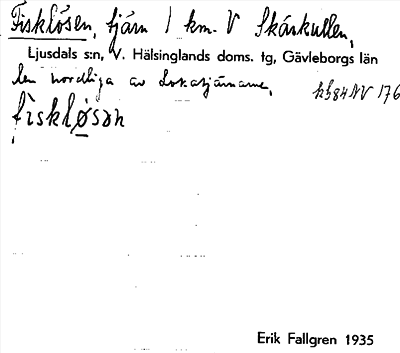 Fisklösen, tjärn 1 km. V Skärkullen,
Ljusdals s:n, V. Hälsinglands doms. tg, Gävleborgs län
den nordliga av Lokatjärnarne,
kbl 84 NV 176
fisklø̀sən
Erik Fallgren 1935